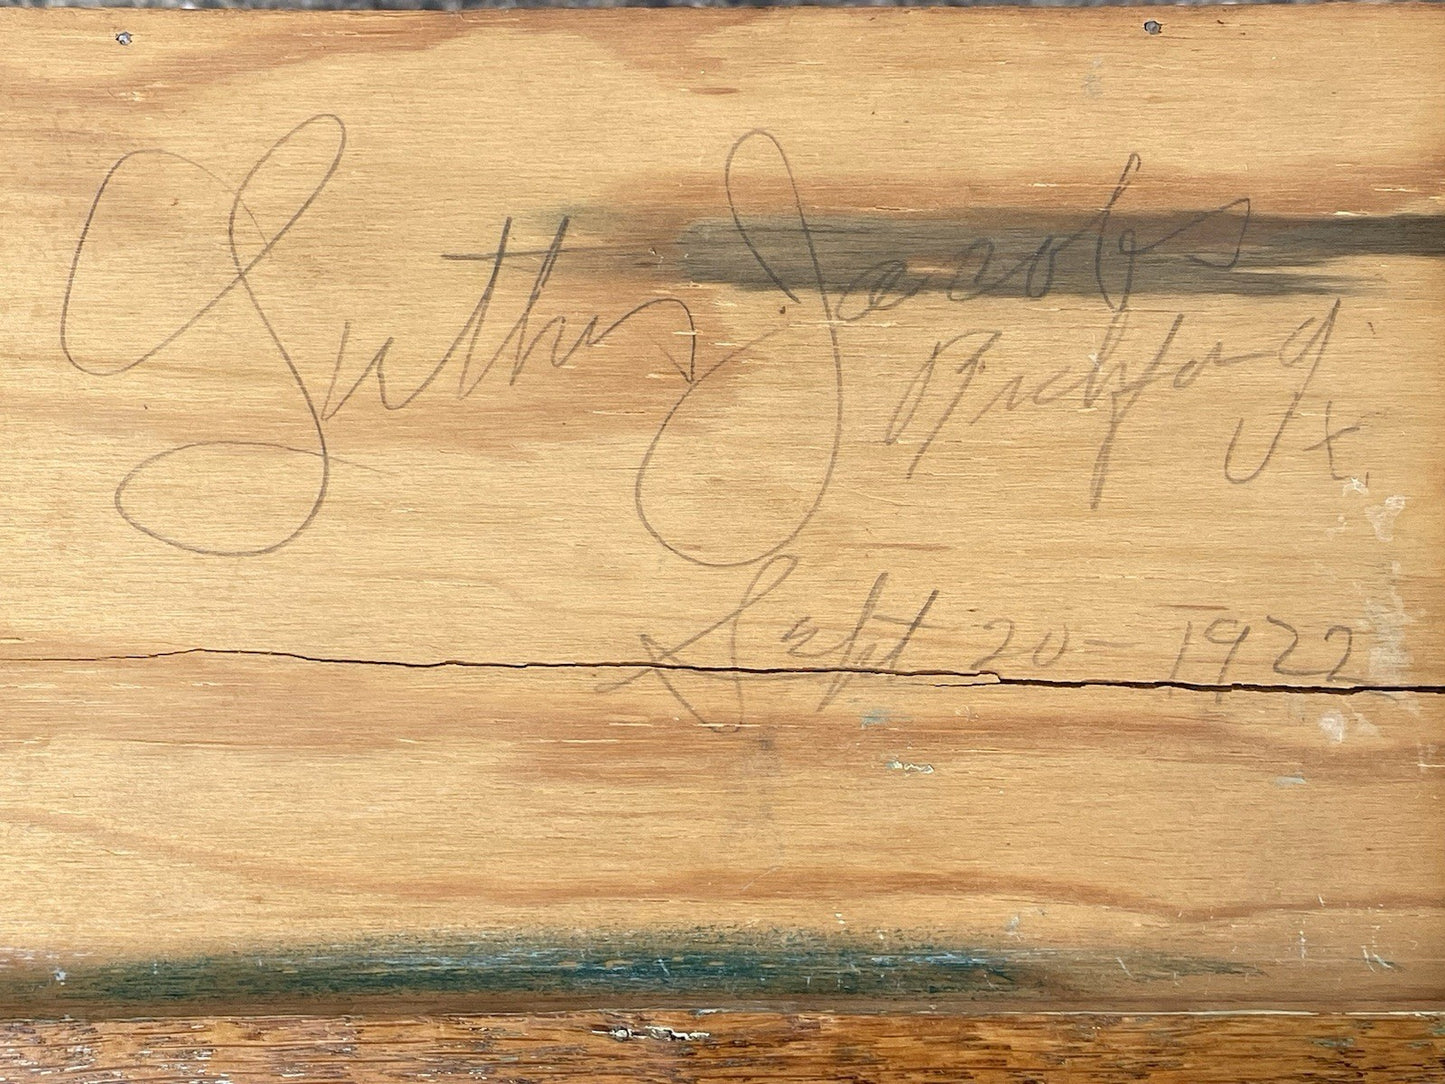 Luther Jacobs
Richford Vt.
Sept 20-1922